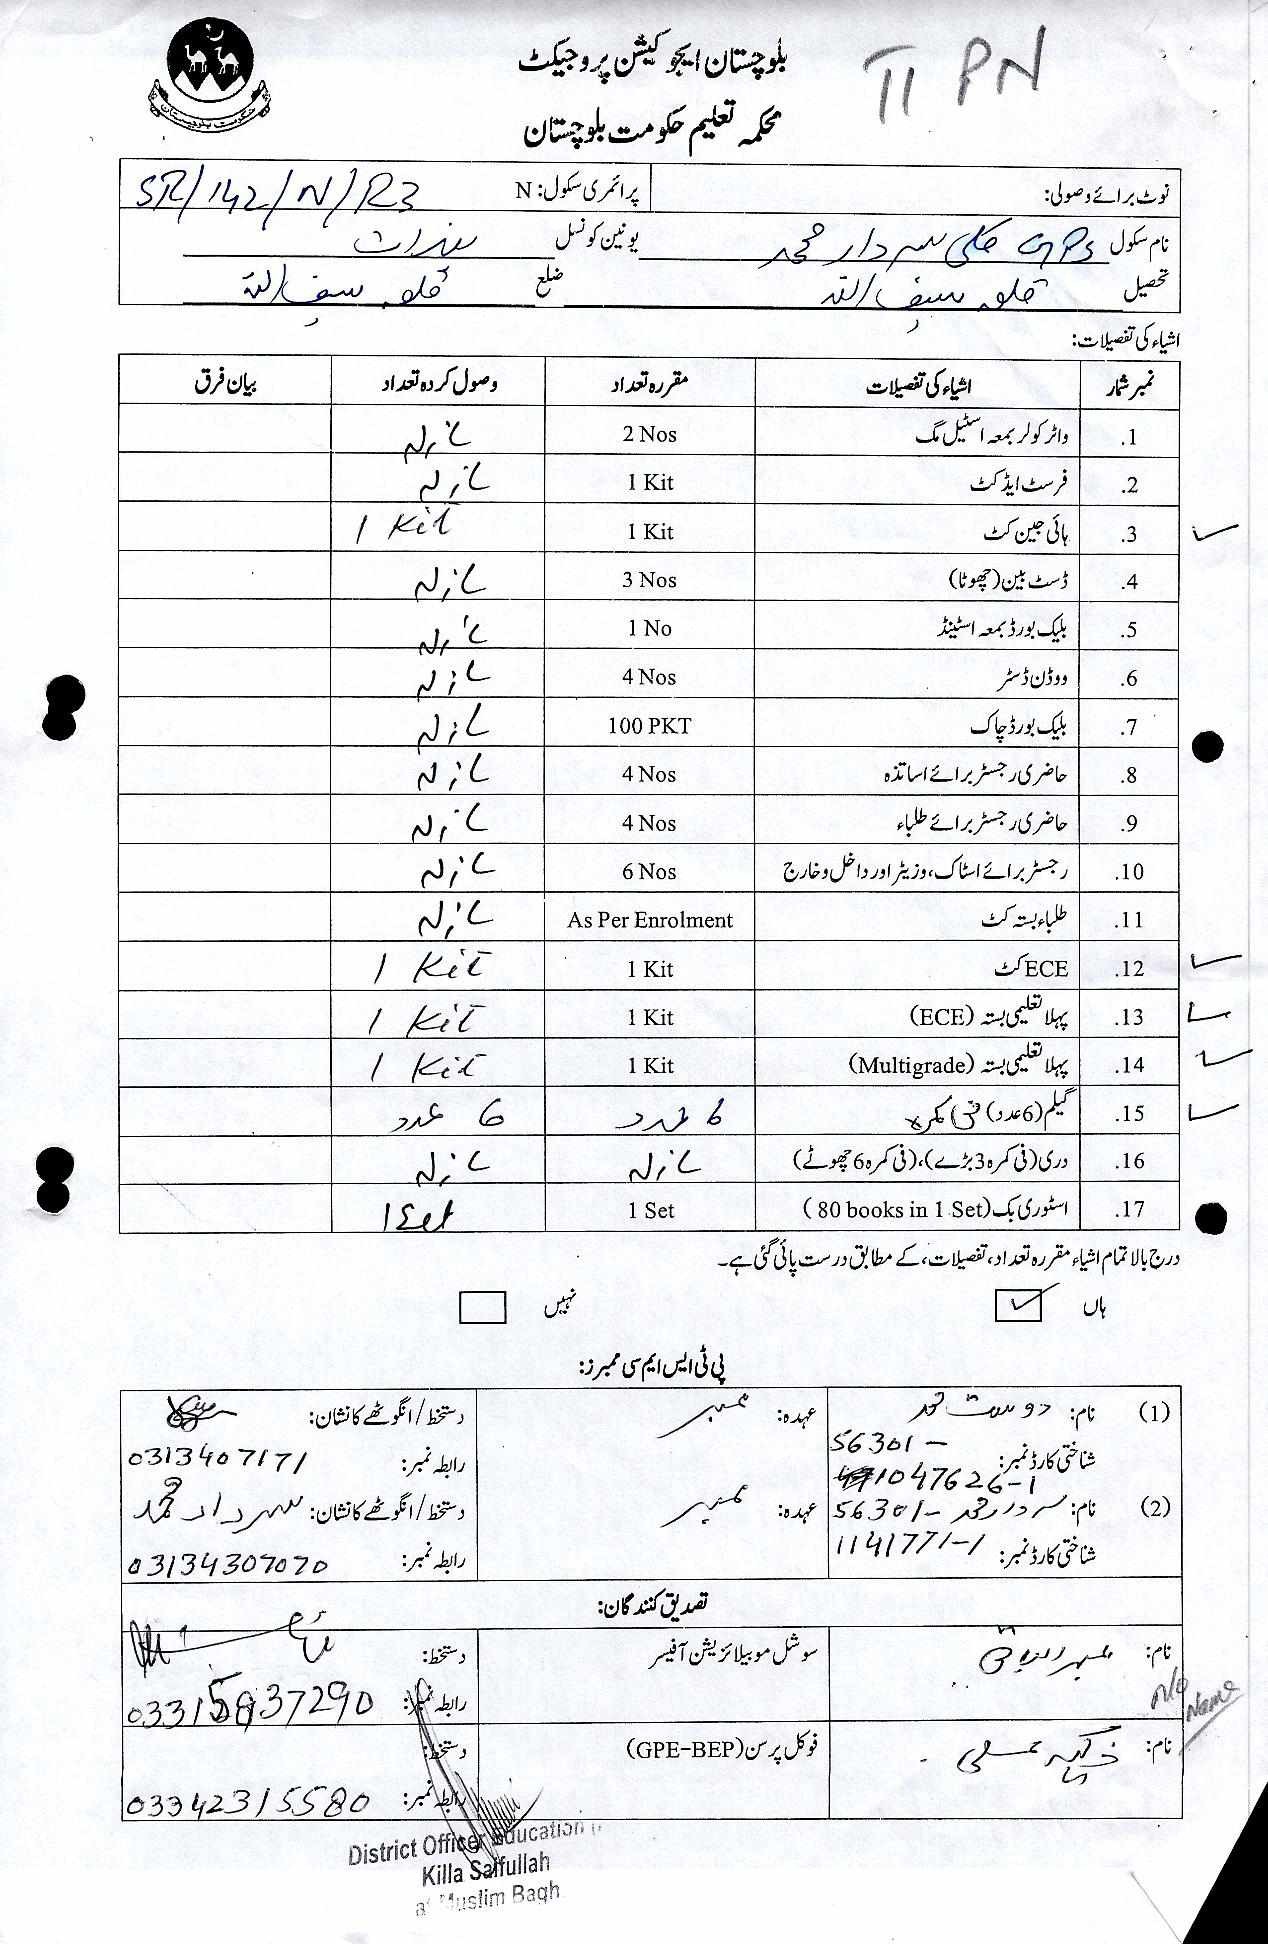 TI PN
بلوچستان ایجوکیشن پروجیکٹ
محکمہ تعلیم حکومت بلوچستان
حکومت بلوچستان
نوٹ برائے وصولی: پرائمری سکول: N SR/142/N/R3
نام سکول GPS کلی سردار محمد یونین کونسل
تحصیل قلعہ سیف اللہ ضلع قلعہ سیف اللہ
اشیاء کی تفصیلات:
نمبر شمار اشیاء کی تفصیلات مقررہ تعداد وصول کردہ تعداد بیان فرق
1. واٹر کولر بمعہ اسٹیل مگ 2 Nos
2. فرسٹ ایڈ کٹ 1 Kit
3. ہائی جین کٹ 1 Kit 1 Kit
4. ڈسٹ بین (چھوٹا) 3 Nos
5. بلیک بورڈ بمعہ اسٹینڈ 1 No
6. ووڈن ڈسٹر 4 Nos
7. بلیک بورڈ چاک 100 PKT
8. حاضری رجسٹر برائے اساتذہ 4 Nos
9. حاضری رجسٹر برائے طلباء 4 Nos
10. رجسٹر برائے اسٹاک، وزیٹر اور داخل و خارج 6 Nos
11. طلباء بستہ کٹ As Per Enrolment
12. ECE کٹ 1 Kit 1 Kit
13. پہلا تعلیمی بستہ (ECE) 1 Kit 1 Kit
14. پہلا تعلیمی بستہ (Multigrade) 1 Kit 1 Kit
15. گیلم (6 عدد) فی کمرہ 6 عدد 6 عدد
16. دری (فی کمرہ 3 بڑے)، (فی کمرہ 6 چھوٹے)
17. اسٹوری بک (80 books in 1 Set) 1 Set 1 Set
درج بالا تمام اشیاء مقررہ تعداد، تفصیلات، کے مطابق درست پائی گئی ہے۔
ہاں نہیں
پی ٹی ایس ایم سی ممبرز:
(1) نام: دوست محمد عہدہ: ممبر دستخط/انگوٹھے کا نشان:
شناختی کارڈ نمبر: 56301-1047626-1 رابطہ نمبر: 0313407171
(2) نام: سردار محمد عہدہ: ممبر دستخط/انگوٹھے کا نشان: سردار محمد
شناختی کارڈ نمبر: 56301-1141771-1 رابطہ نمبر: 03134307070
تصدیق کنندگان:
نام: سوشل موبیلائزیشن آفیسر دستخط:
رابطہ نمبر: 03315837290
n/o Name
نام: فوکل پرسن (GPE-BEP) دستخط:
رابطہ نمبر: 03342315580
District Officer Education
Killa Saifullah
at Muslim Bagh